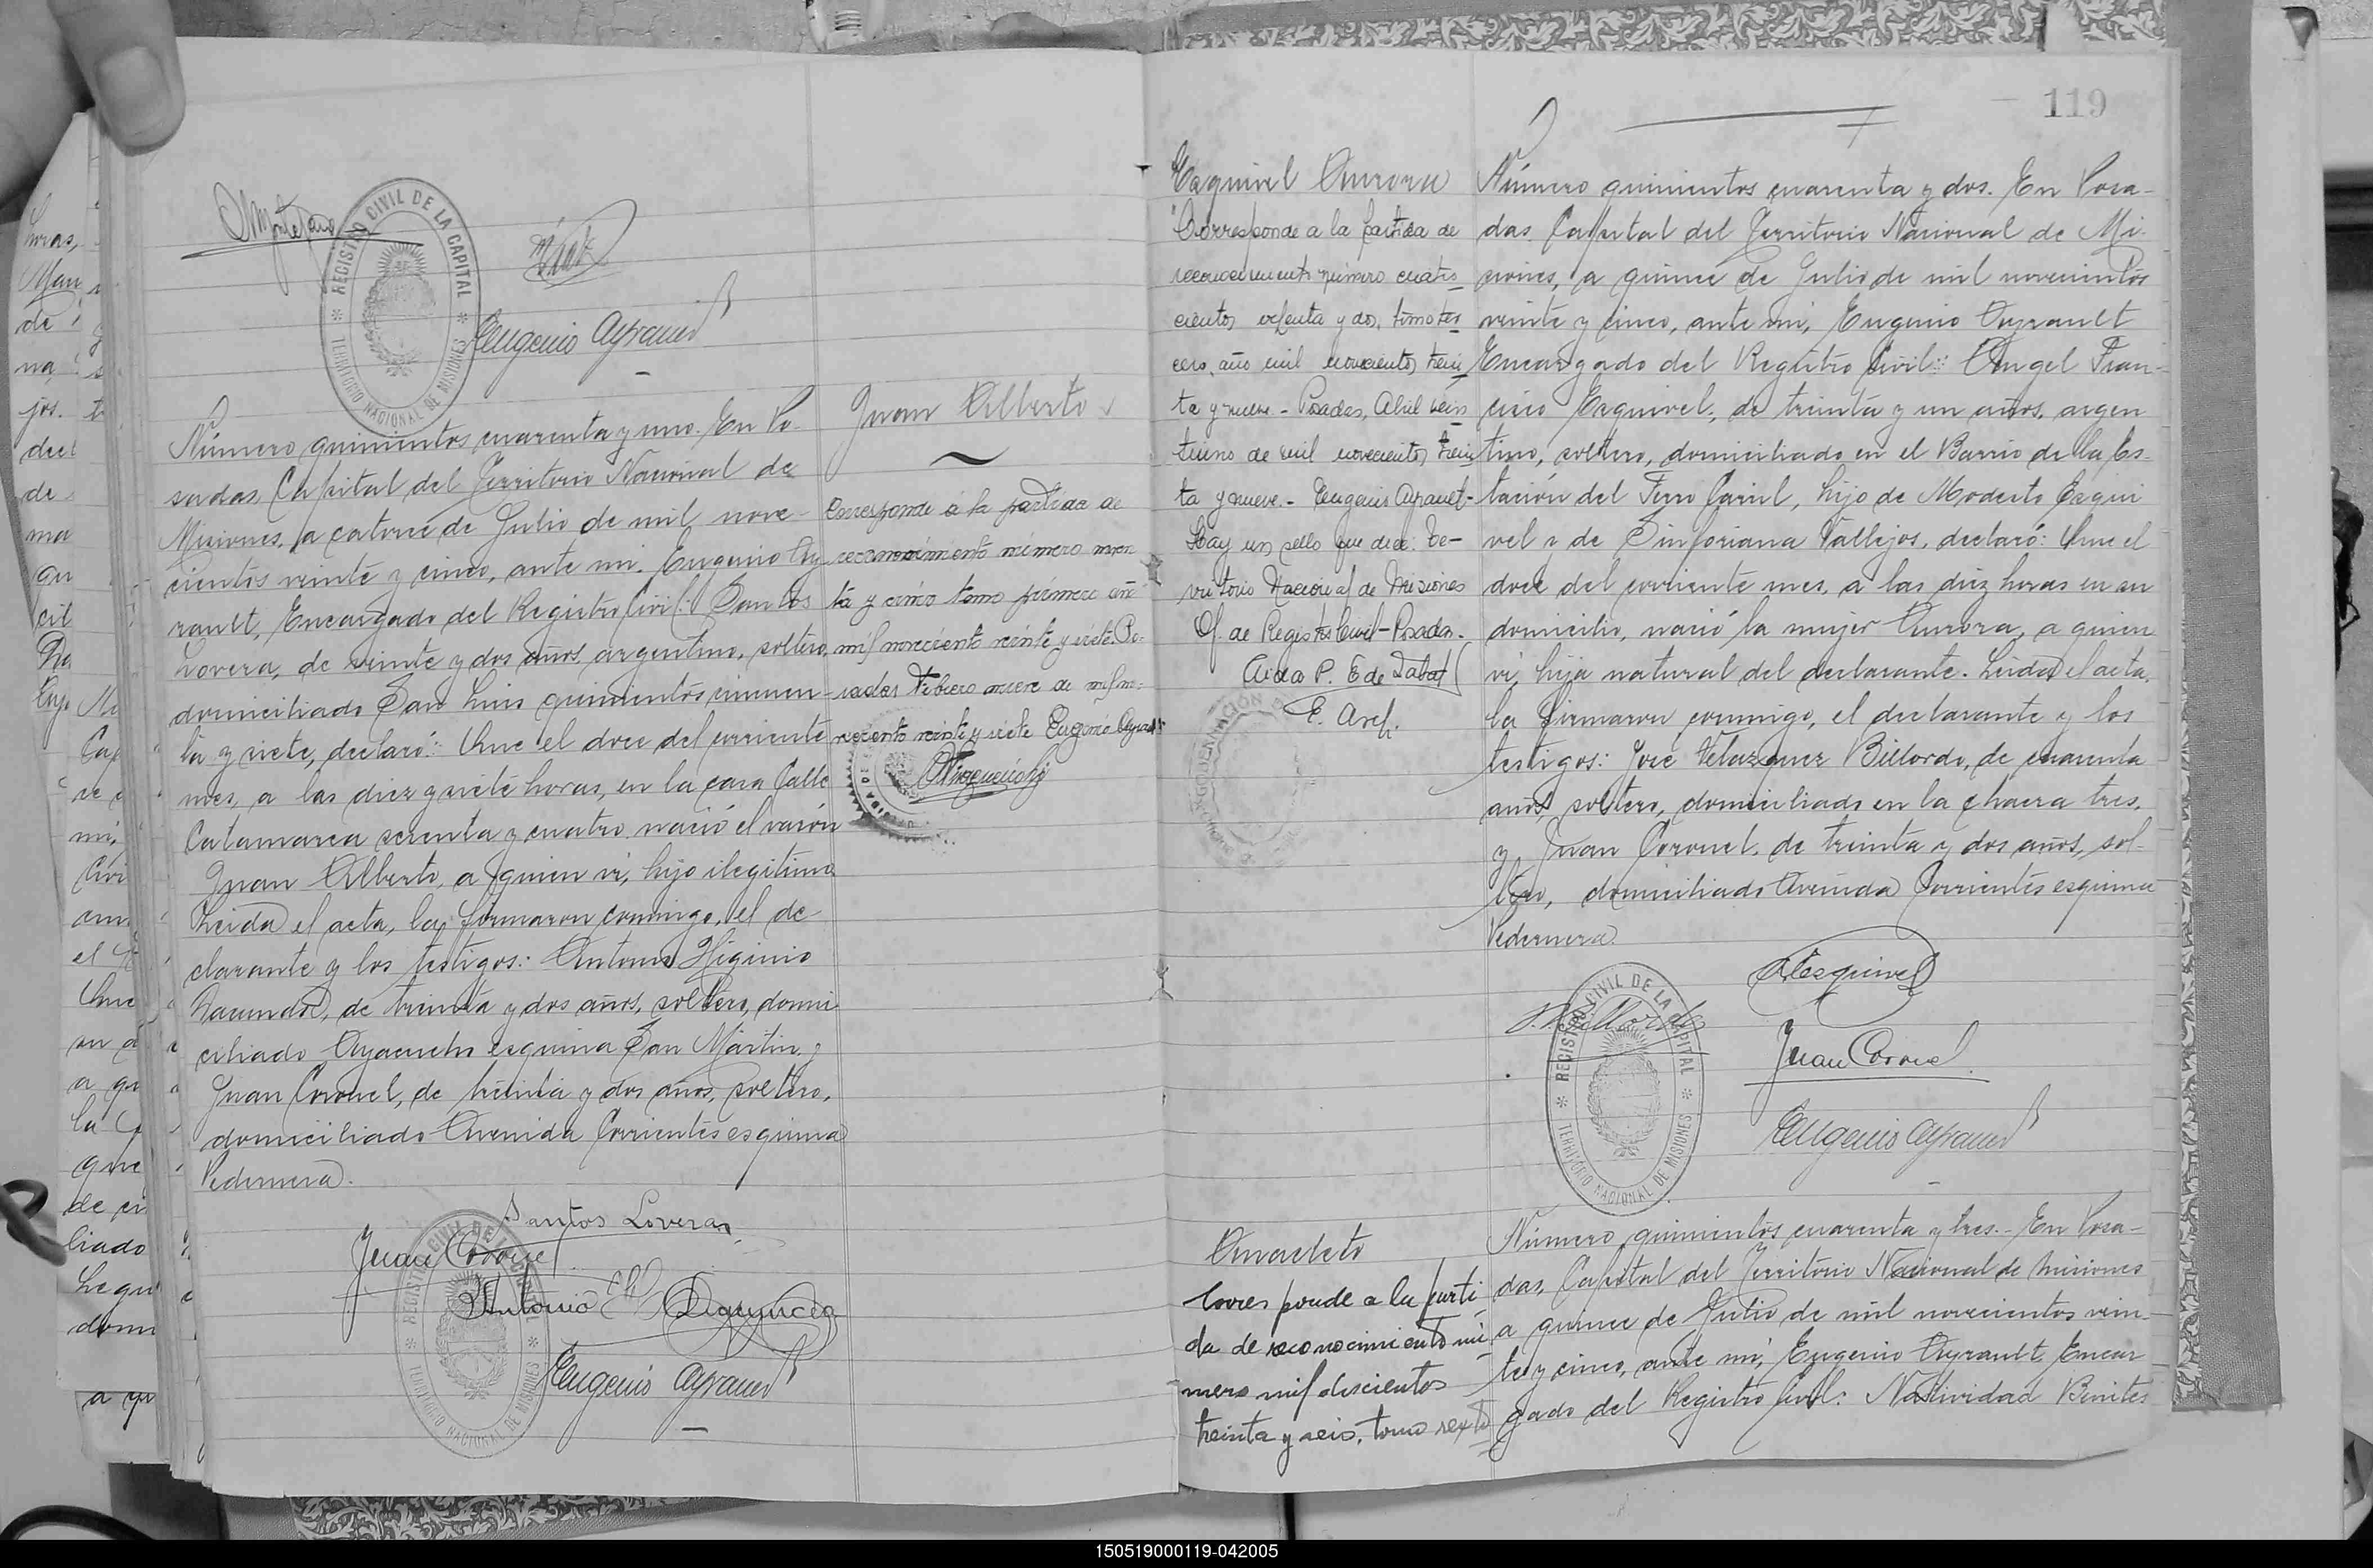 REGISTRO CIVIL DE LA CAPITAL
TERRITORIO NACIONAL DE MISIONES
Eugenio Ayrault
Juan Alberto
Número quinientos cuarenta y uno. En Po-
sadas, Capital del Territorio Nacional de
Misiones, a catorce de Julio de mil nove-
cientos veinte y cinco, ante mi, Eugenio Ay-
rault, Encargado del Registro Civil: Santos
Lovera, de veinte y dos años, argentino, soltero,
domiciliado San Luis quinientos cincuen-
ta y siete, declaró: Que el doce del corriente
mes, a las diez y siete horas, en la casa Calle
Catamarca setenta y cuatro nació el varón
Juan Alberto, a quien vi, hijo ilegitimo.
Leida el acta, la firmaron conmigo, el de-
clarante y los testigos: Antonio Higinio
de treinta y dos años, soltero, domi-
ciliado Ayacucho esquina San Martin y
Juan Coronel, de treinta y dos años, soltero,
domiciliado Avenida Corrientes esquina
Pedernera.
Corresponde á la partida de
reconocimiento número noven
ta y cinco tomo primero año
mil novecientos veinte y siete. Po-
sadas Febrero nueve de mil no-
vecientos veinte y siete Eugenio Ayrault
Santos Lovera
Juan Coronel
Antonio H.
Eugenio Ayrault
REGISTRO CIVIL DE LA CAPITAL
TERRITORIO NACIONAL DE MISIONES
119
Esquivel Aurora
"Corresponde a la partida de
reconocimiento número cuatro
cientos ochenta y dos, tomo ter
cero, año mil novecientos trein
ta y nueve.- Posadas, Abril vein
tiuno de mil novecientos trein
ta y nueve.- Eugenio Ayrault-
Hay un sello que dice: Te-
rritorio Nacional de Misiones
Of. de Registro Civil-Posadas.
Aida P. E de
Número quinientos cuarenta y dos. En Posa-
das, Capital del Territorio Nacional de Mi-
siones, a quince de Julio de mil novecientos
veinte y cinco, ante mi, Eugenio Ayrault
Encargado del Registro Civil: Angel Fran-
cisco Esquivel, de treinta y un años, argen
tino, soltero, domiciliado en el Barrio de la Es-
tación del Ferro Carril, hijo de Modesto Esqui
vel y de Sinforiana Vallejos, declaró: Que el
doce del corriente mes, a las diez horas en su
domicilio, nació la mujer Aurora, a quien
vi, hija natural del declarante. Leida el acta,
la firmaron conmigo, el declarante y los
testigos: José Velazquez Billordo, de cuarenta
años, soltero, domiciliado en la chacra tres,
y Juan Coronel, de treinta y dos años, sol-
tero, domiciliado Avenida Corrientes esquina
Pedernera.
Esquivel
Juan Coronel
Eugenio Ayrault
REGISTRO CIVIL DE LA CAPITAL
TERRITORIO NACIONAL DE MISIONES
Anacleto
Corresponde a la parti
da de reconocimiento nú
mero mil doscientos
treinta y seis, tomo sexto
Número quinientos cuarenta y tres.- En Posa-
das, Capital del Territorio Nacional de Misiones
a quince de Julio de mil novecientos vein-
te y cinco, ante mi, Eugenio Ayrault, Encar
gado del Registro Civil: Natividad Benites
150519000119-042005